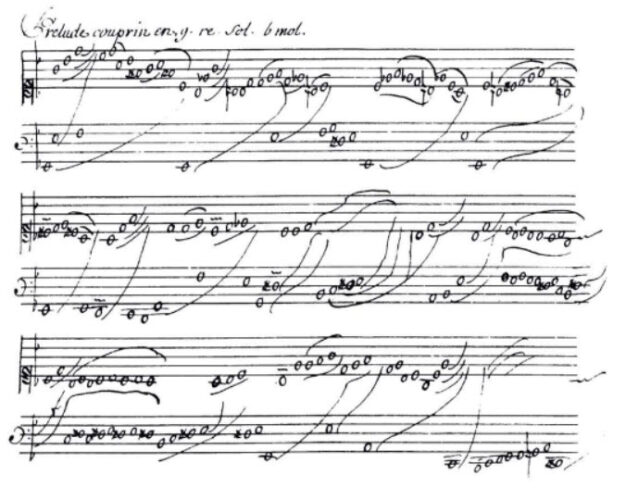 Prelude couprin en g. re. sol. b mol.